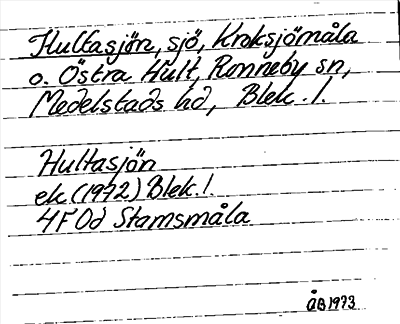 Hultasjön, sjö, Kroksjömåla
o. Östra Hult, Ronneby sn,
Medelstads hd, Blek. l.
Hultasjön
ek (1972) Blek. l.
4F 0d Stamsmåla
ÅB 1973